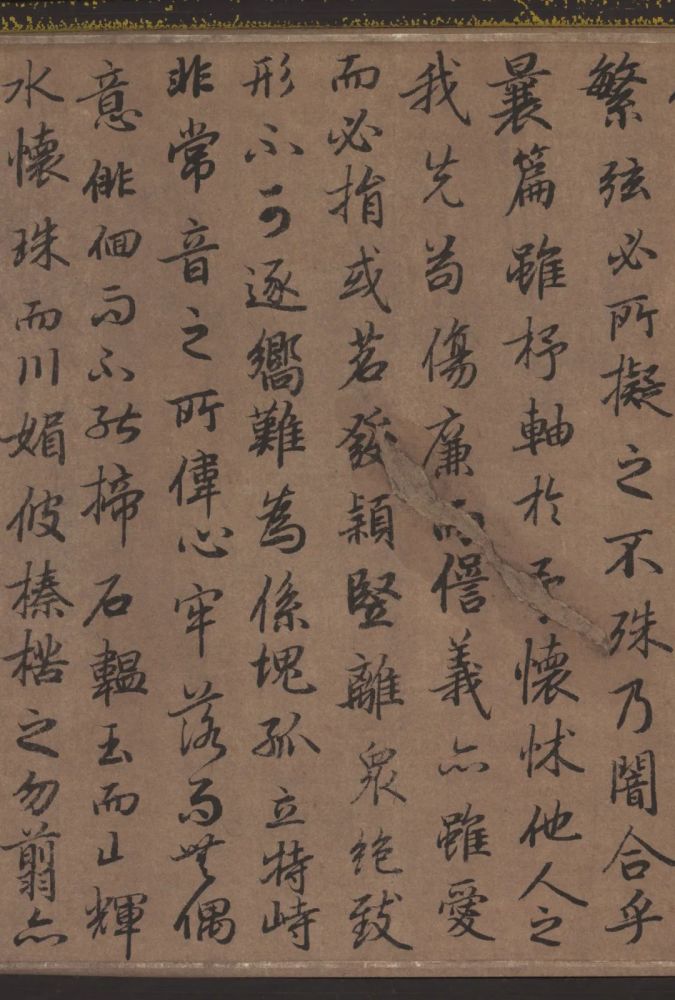 繁弦必所擬之不殊乃闇合乎
曩篇雖杼軸於予懷怵他人之
我先苟傷廉而㥶義亦雖愛
而必捐或苕發穎竪離衆絕致
形不可逐嚮難為係塊孤立特峙
非常音之所偉心牢落而無偶
意徘徊而不能揥石韞玉而山輝
水懷珠而川媚彼榛楛之勿翦亦